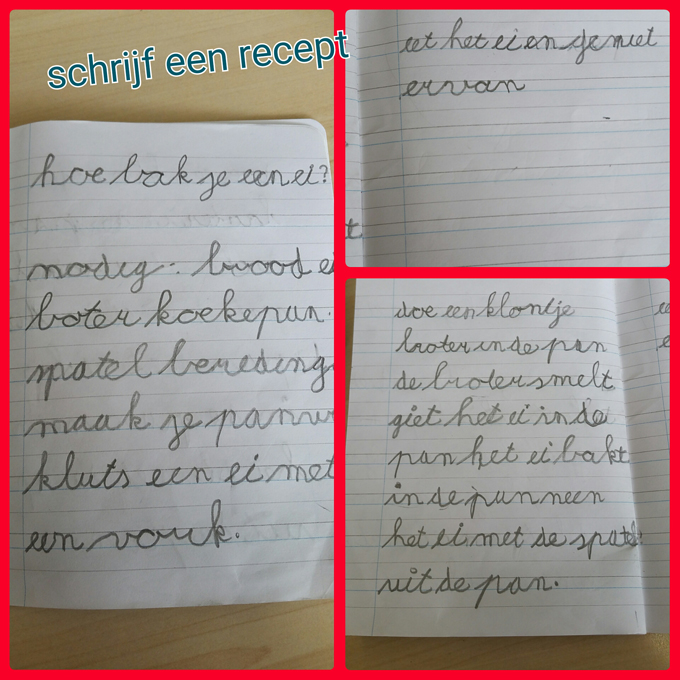 schrijf een recept
hoe bak je een ei?
nodig: brood ei
boter koekepan.
spatel bereding
maak je pan
kluts een ei met
een vork.
doe een klontje
boter in de pan
de boter smelt
giet het ei in de
pan het ei bakt
in de pan neen
het ei met de spatel
uit de pan.
eet het ei en geniet
ervan